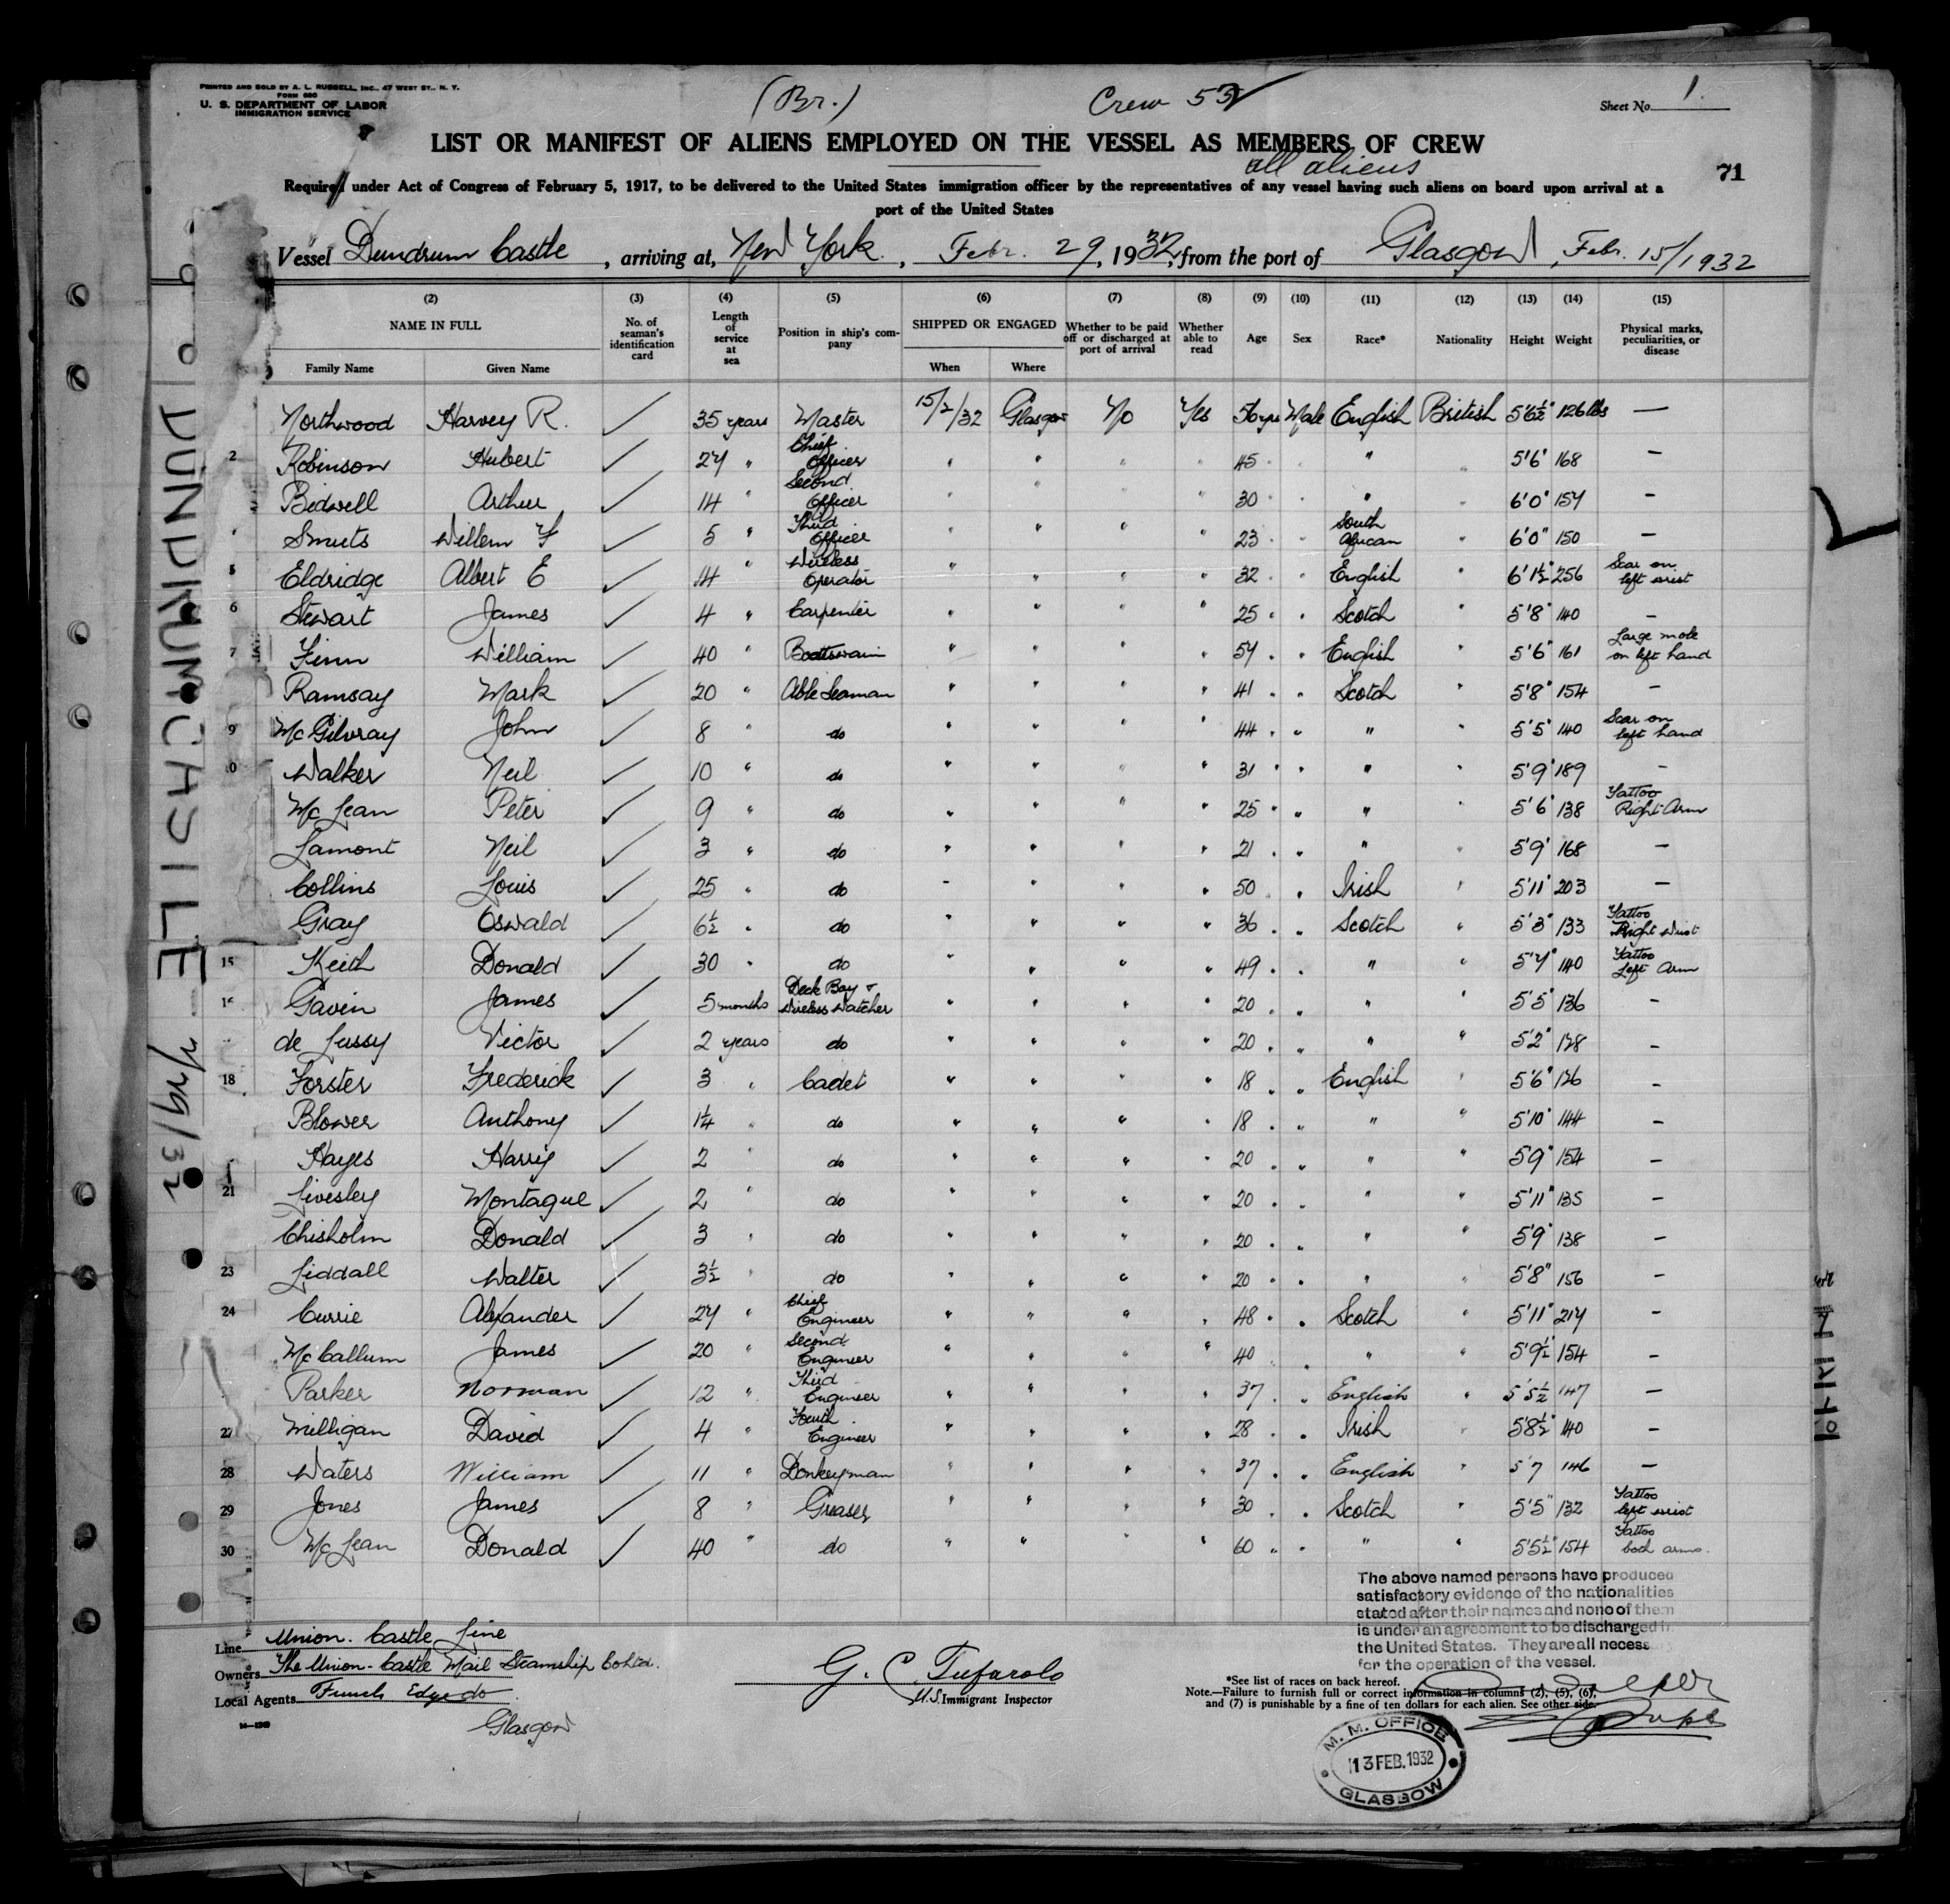 PRINTED AND SOLD BY A. L. RUSSELL, INC., 47 WEST ST., N. Y.
FORM 680
U. S. DEPARTMENT OF LABOR
IMMIGRATION SERVICE
(Br.)
Crew 53
Sheet No. 1.
LIST OR MANIFEST OF ALIENS EMPLOYED ON THE VESSEL AS MEMBERS OF CREW
all aliens
71
Required under Act of Congress of February 5, 1917, to be delivered to the United States immigration officer by the representatives of any vessel having such aliens on board upon arrival at a
port of the United States
Vessel Dundrum Castle, arriving at, New York, Febr. 29, 1932, from the port of Glasgow, Febr. 15/1932
(2) (3) (4) (5) (6) (7) (8) (9) (10) (11) (12) (13) (14) (15)
NAME IN FULL No. of seaman's identification card Length of service at sea Position in ship's company SHIPPED OR ENGAGED Whether to be paid off or discharged at port of arrival Whether able to read Age Sex Race* Nationality Height Weight Physical marks, peculiarities, or disease
Family Name Given Name When Where
Northwood Harvey R. ✓ 35 years Master 15/2/32 Glasgow No Yes 56 yrs Male English British 5'6½" 126 lbs —
2 Robinson Hubert ✓ 27 " Chief Officer " " " " 45 " " " 5'6" 168 —
Bidwell Arthur ✓ 14 " Second Officer " " " " 30 " " " 6'0" 157 —
Smuts Willem F ✓ 5 " Third Officer " " " " 23 " South African " 6'0" 150 —
5 Eldridge Albert E ✓ 14 " Wireless Operator " " " " 32 " English " 6'1½" 256 Scar on left wrist
6 Stewart James ✓ 4 " Carpenter " " " " 25 " Scotch " 5'8" 140 —
7 Finn William ✓ 40 " Boatswain " " " " 57 " English " 5'6" 161 Large mole on left hand
Ramsay Mark ✓ 20 " Able Seaman " " " " 41 " Scotch " 5'8" 154 —
9 McGilvray John ✓ 8 " do " " " " 44 " " " 5'5" 140 Scar on left hand
10 Walker Neil ✓ 10 " do " " " " 31 " " " 5'9" 189 —
McLean Peter ✓ 9 " do " " " " 25 " " " 5'6" 138 Tattoo Right Arm
Lamont Neil ✓ 3 " do " " " " 21 " " " 5'9" 168 —
Collins Louis ✓ 25 " do " " " " 50 " Irish " 5'11" 203 —
Gray Oswald ✓ 6½ " do " " " " 36 " Scotch " 5'3" 133 Tattoo Right Wrist
15 Keith Donald ✓ 30 " do " " " " 49 " " " 5'7" 140 Tattoo Left Arm
16 Gavin James ✓ 5 months Deck Boy & Wireless Watcher " " " " 20 " " " 5'5" 136 —
de Lussy Victor ✓ 2 years do " " " " 20 " " " 5'2" 128 —
18 Forster Frederick ✓ 3 " Cadet " " " " 18 " English " 5'6" 126 —
Blower Anthony ✓ 1¼ " do " " " " 18 " " " 5'10" 144 —
Hayes Harry ✓ 2 " do " " " " 20 " " " 5'9" 154 —
21 Livesley Montague ✓ 2 " do " " " " 20 " " " 5'11" 135 —
Chisholm Donald ✓ 3 " do " " " " 20 " " " 5'9" 138 —
23 Liddall Walter ✓ 3½ " do " " " " 20 " " " 5'8" 156 —
24 Currie Alexander ✓ 27 " Chief Engineer " " " " 48 " Scotch " 5'11" 217 —
McCallum James ✓ 20 " Second Engineer " " " " 40 " " " 5'9½" 154 —
Parker Norman ✓ 12 " Third Engineer " " " " 37 " English " 5'5½" 147 —
27 Milligan David ✓ 4 " Fourth Engineer " " " " 28 " Irish " 5'8½" 140 —
28 Waters William ✓ 11 " Donkeyman " " " " 37 " English " 5'7 146 —
29 Jones James ✓ 8 " Greaser " " " " 30 " Scotch " 5'5" 132 Tattoo left wrist
30 McLean Donald ✓ 40 " do " " " " 60 " " " 5'5½" 154 Tattoo both arms.
The above named persons have produced
satisfactory evidence of the nationalities
stated after their names and none of them
is under an agreement to be discharged in
the United States. They are all necess
for the operation of the vessel.
Line Union-Castle Line
Owners The Union-Castle Mail Steamship Co Ltd.
Local Agents Funch Edye do
Glasgow
14—1240
G. C. Tufarolo
U.S. Immigrant Inspector
*See list of races on back hereof.
Note.—Failure to furnish full or correct information in columns (2), (5), (6),
and (7) is punishable by a fine of ten dollars for each alien. See other side.
M. M. OFFICE
13 FEB. 1932
GLASGOW
DUNDRUM CASTLE 2/29/32